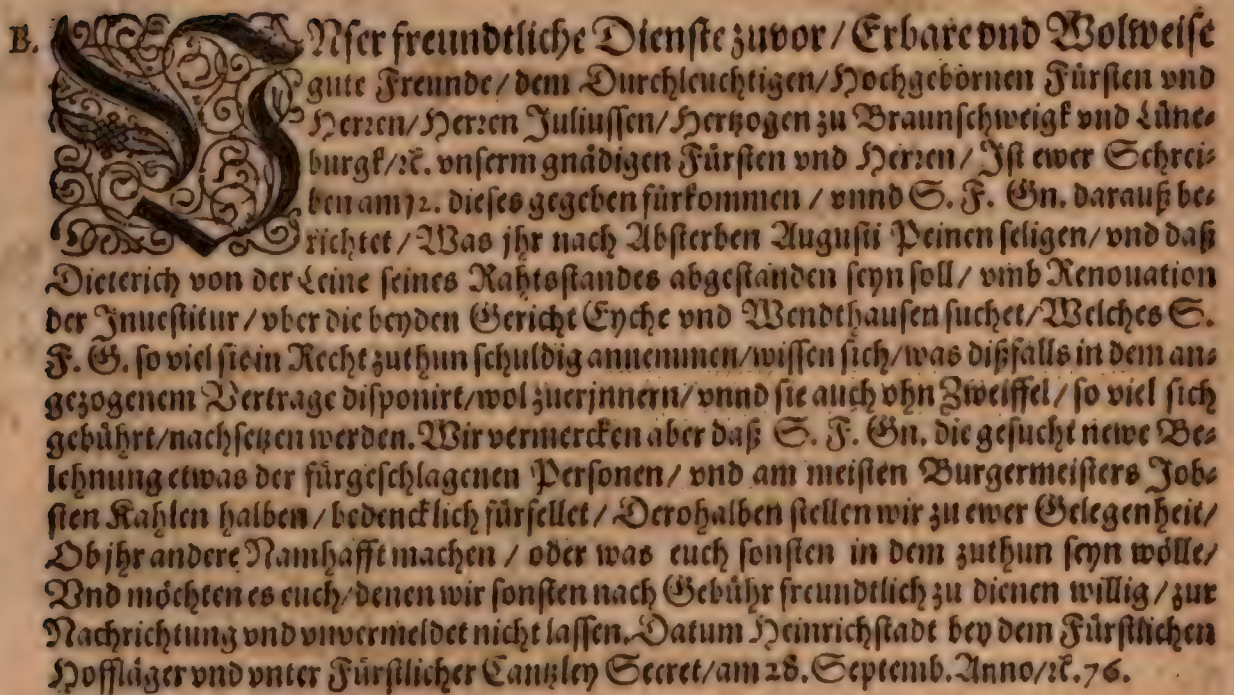 B. VNser freundtliche Dienste zuvor / Erbare vnd Wolweise
gute Freunde / dem Durchleuchtigen / Hochgebornen Fürsten vnd
Herren / Herren Juliussen / Hertzogen zu Braunschweigk vnd Lüne⸗
burgk /ꝛc. vnserm gnådigen Fürsten vnd Herren / Ist ewer Schrei⸗
ben am 12. dieses gegeben fürkommen / vnnd S. F. Gn. darauß be⸗
richtet / Was jhr nach Absterben Augusti Peinen seligen / vnd daß
Dieterich von der Leine seines Rahtsstandes abgestanden seyn soll / vmb Renouation
der Inuestitur / vber die beyden Gericht Eyche vnd Wendthausen suchet / Welches S.
F. G. so viel sie in Recht zuthun schuldig annemmen / wissen sich / was dißfalls in dem an⸗
gezogenem Vertrage disponirt / wol zuerjnnern / vnnd sie auch ohn Zweiffel / so viel sich
gebührt / nachsetzen werden. Wir vermercken aber daß S. F. Gn. die gesucht newe Be⸗
lehnung etwas der fürgeschlagenen Personen / vnd am meisten Burgermeisters Job⸗
sten Kahlen halben / bedencklich fürfellet / Derohalben stellen wir zu ewer Gelegenheit /
Ob jhr andere Namhafft machen / oder was euch sonsten in dem zuthun seyn wölle /
Vnd möchten es euch / denen wir sonsten nach Gebühr freundtlich zu dienen willig / zur
Nachrichtung vnd vnvermeldet nicht lassen. Datum Heinrichstadt bey dem Fürstlichen
Hoffläger vnd vnter Fürstlicher Cantzley Secret / am 28. Septemb. Anno /ꝛc. 76.